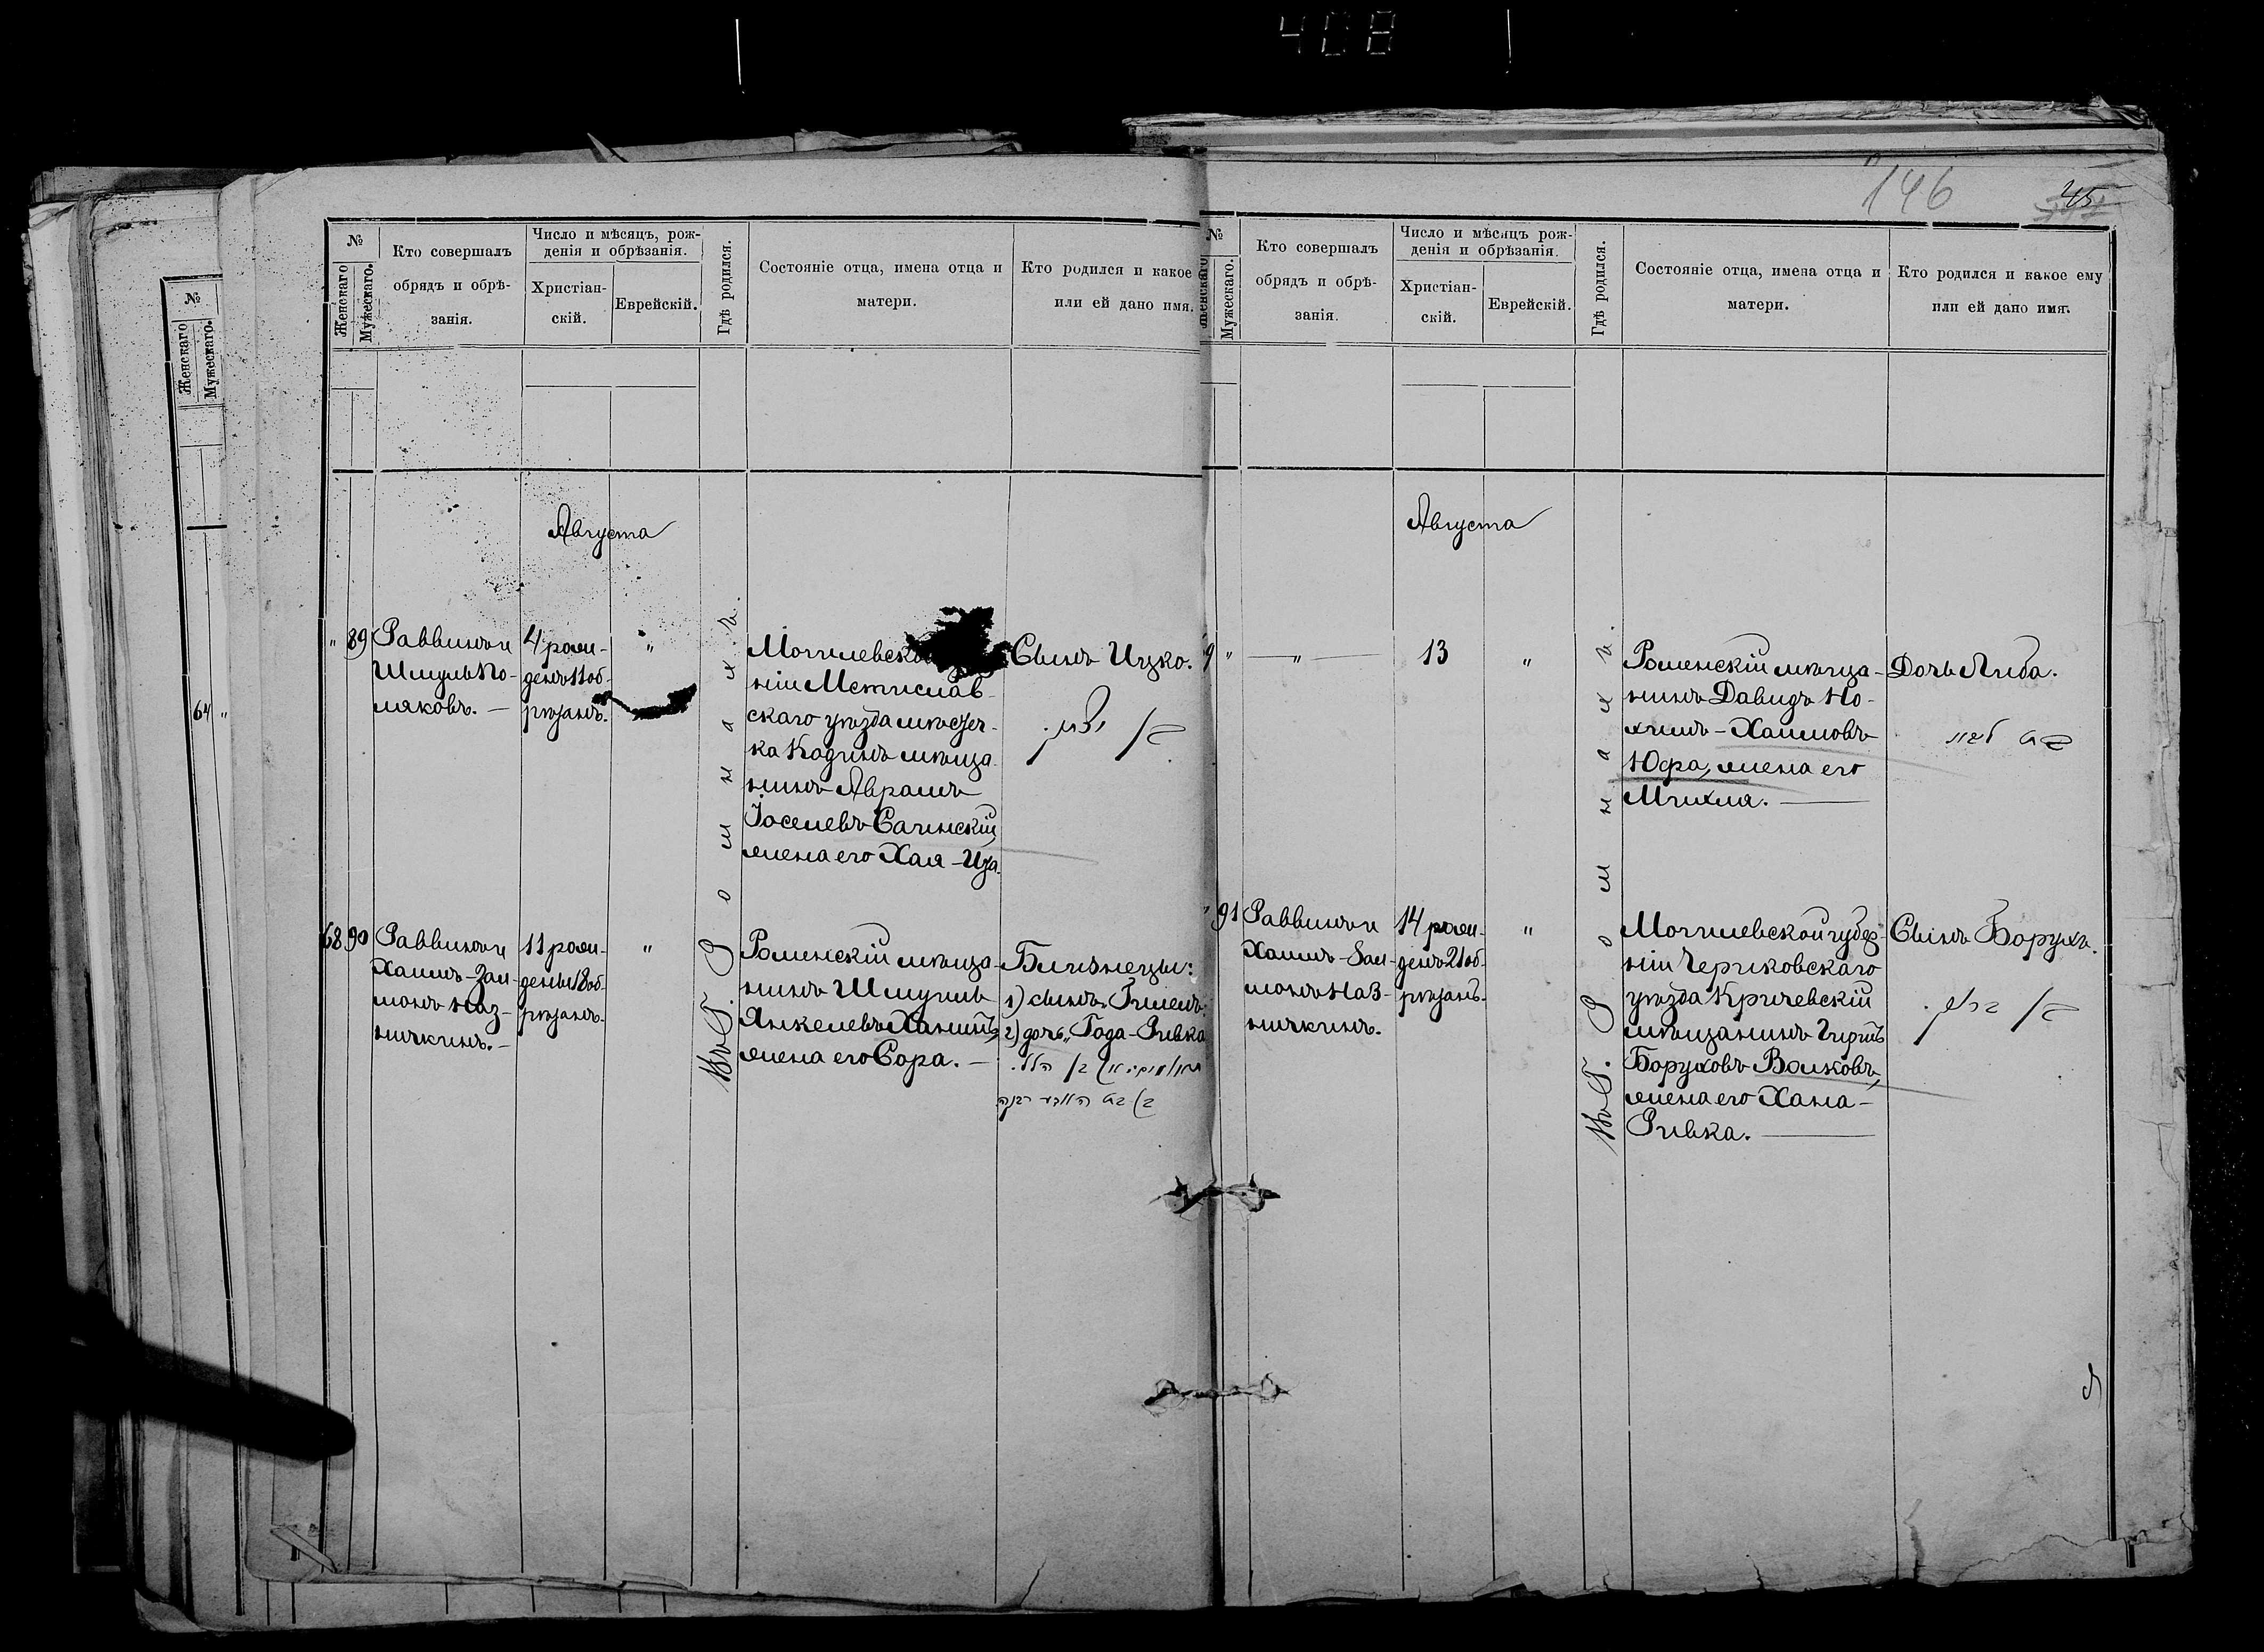 408
146
45
№
Женскаго
Мужескаго.
64 "
№
Женскаго
Мужескаго.
Кто совершалъ
обрядъ и обрѣ-
занія.
Число и мѣсяцъ, рож-
денія и обрѣзанія.
Христіан-
скій.
Еврейскій.
Гдѣ родился.
Состояніе отца, имена отца и
матери.
Кто родился и какое
или ей дано имя.
Августа
" 89
Раввинъ и
Шмуль По-
ляковъ. —
4 рожд-
денъ 11 об-
рѣзанъ.
"
Могилевской
ніи Мстислав-
скаго уѣзда мѣстеч-
ка Кадинъ мѣща-
нинъ Абрамъ
Іоселевъ Сагинскій,
жена его Хая-Иза.
Сынъ Ицко.
בן יצחק.
68 90
Раввинъ и
Хаимъ-Зал-
монъ Наз-
ничкинъ. —
11 рож-
дены 18 об-
рѣзанъ.
"
Роменскій мѣща-
нинъ Шмуилъ
Янкелевъ Ханинъ,
жена его Сора. —
Близнецы:
1) сынъ „Гилелъ;
2) дочь „Года-Ривка
בת האדע רבקה
Въ Г. Ромнахъ.
№
Женскаго
Мужескаго.
Кто совершалъ
обрядъ и обрѣ-
занія.
Число и мѣсяцъ рож-
денія и обрѣзанія.
Христіан-
скій.
Еврейскій.
Гдѣ родился.
Состояніе отца, имена отца и
матери.
Кто родился и какое ему
или ей дано имя.
Августа
9 "
— " —
13
"
Роменскій мѣща-
нинъ Давидъ Но-
химъ-Хаимовъ
Юфа, жена его
Михля. —
Дочь Либа.
בת ליבא
" 91
Раввинъ и
Хаимъ-Зал-
монъ Наз-
ничкинъ.
14 рож-
денъ 21 об-
рѣзанъ.
"
Могилевской губер-
ніи Чериковскаго
уѣзда Кричевскій
мѣщанинъ Гиршъ
Боруховъ Волковъ,
жена его Хана-
Ривка. —
Сынъ Борухъ.
בן ברוך.
Въ Г. Ромнахъ.